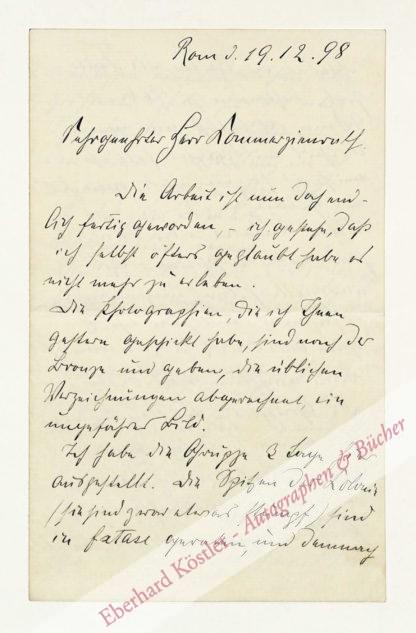 Rom d. 19.12.98
Sehrgeehrter Herr Kommerzienrath.
Die Arbeit ist nun doch end-
lich fertig geworden, - ich gestehe, daß
ich selbst öfters geglaubt habe es
nicht mehr zu erleben.
Die Photographien, die ich Ihnen
gestern geschickt habe, sind nach der
Bronze und geben, die üblichen
Verzeichnungen abgerechnet, ein
ungefähres Bild.
Ich habe die Gruppe 3 Tage hier
ausgestellt. Die Spitzen der Kolonie
(sie sind zwar etwas stumpf) sind
in Extase gewesen, und demnach
Eberhard Köstler - Autographen & Bücher